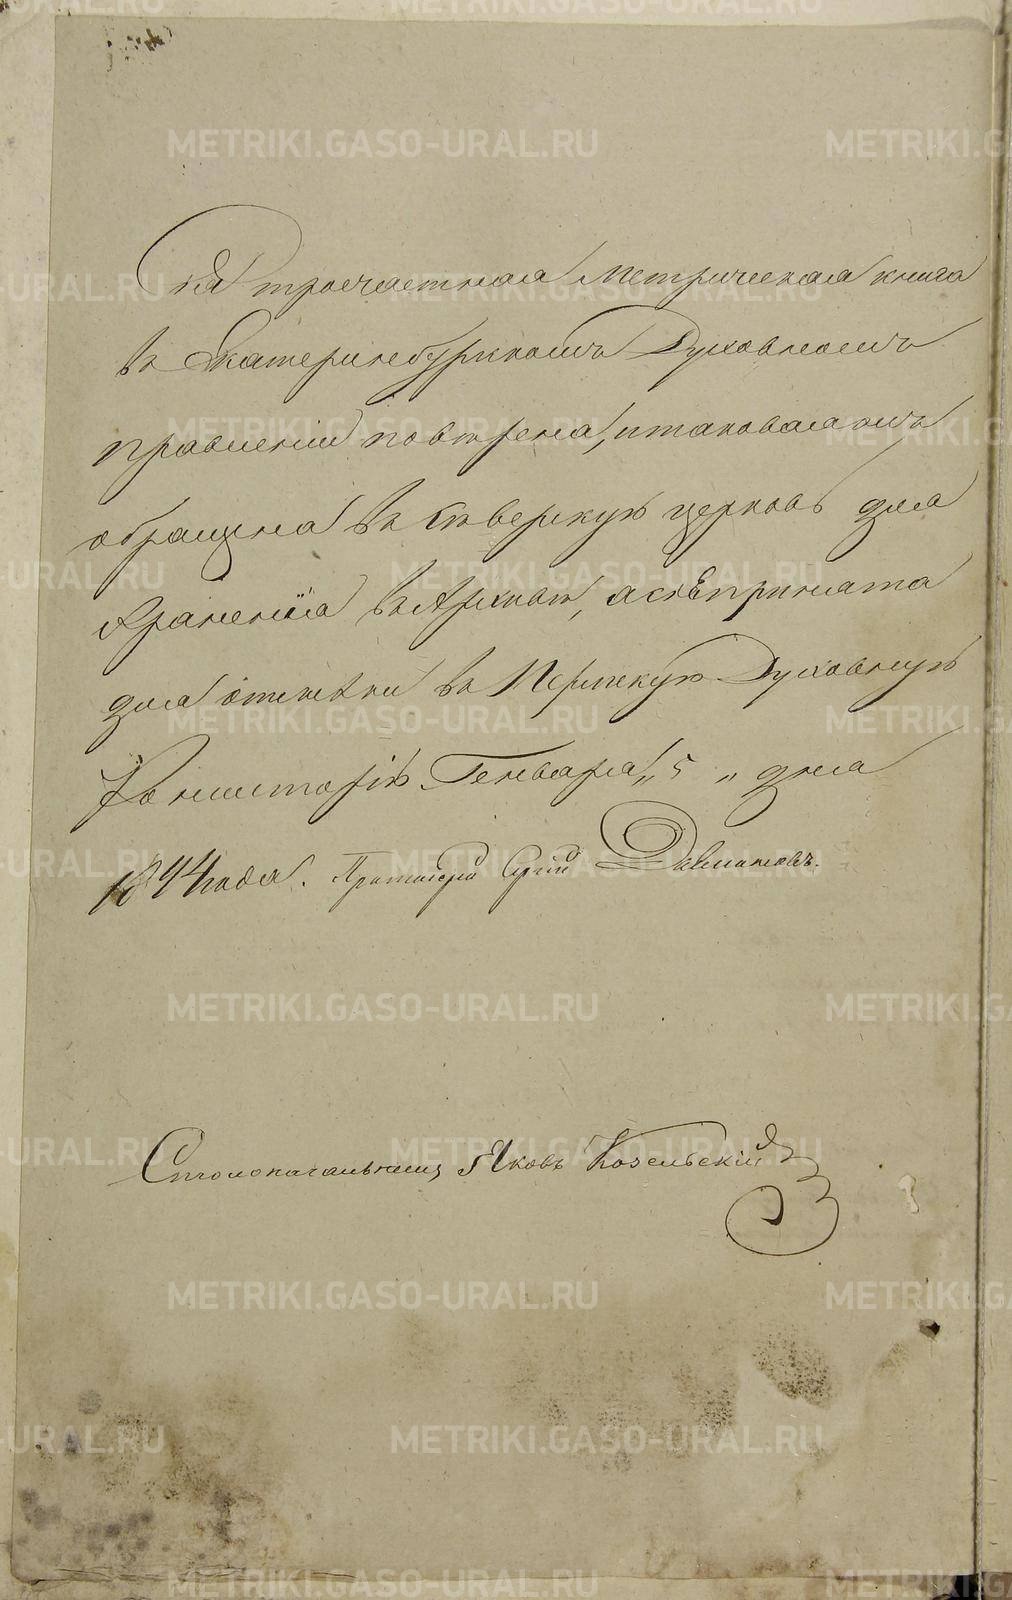 Сія троечастная Метрическая книга
въ Екатеринбургскомъ Духовномъ
правленіи повѣрена, и таковая же
обращена въ Сѣверскую церковь для
храненія въ Архивѣ, а сія принята
для отсылки въ Пермскую Духовную
Консисторію Генваря „5„ дня
1844 года. Протоіерей Сергій
Столоначальникъ Яковъ Козельскій
METRIKI.GASO-URAL.RU